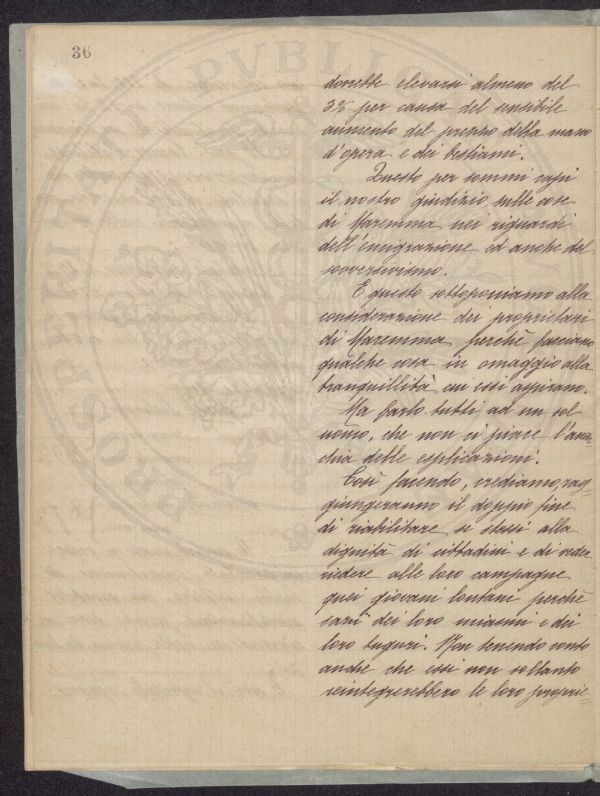 36
PVBLIC
PRO
dovrebbe elevarsi almeno del
3% per causa del sensibile
aumento del prezzo della mano
d'opera e dei bestiami.
Questo per sommi capi
il nostro giudizio sulle cose
di Maremma nei riguardi
dell'emigrazione ed anche del
sovversivismo.
E questo sottoponiamo alla
considerazione dei proprietari
di Maremma perchè facciano
qualche cosa in omaggio alla
tranquillità cui essi aspirano.
Ma farlo tutti ad un sol
uomo, che non ci piace l'anar=
chia delle esplicazioni.
Così facendo, crediamo, rag=
giungeranno il doppio fine
di riabilitare se stessi alla
dignità di cittadini e di veder
riedere alle loro campagne
quei giovani lontani perchè
sazi dei loro miasmi e dei
loro tuguri. Non tenendo conto
anche che essi non soltanto
reintegrerebbero le loro proprie=